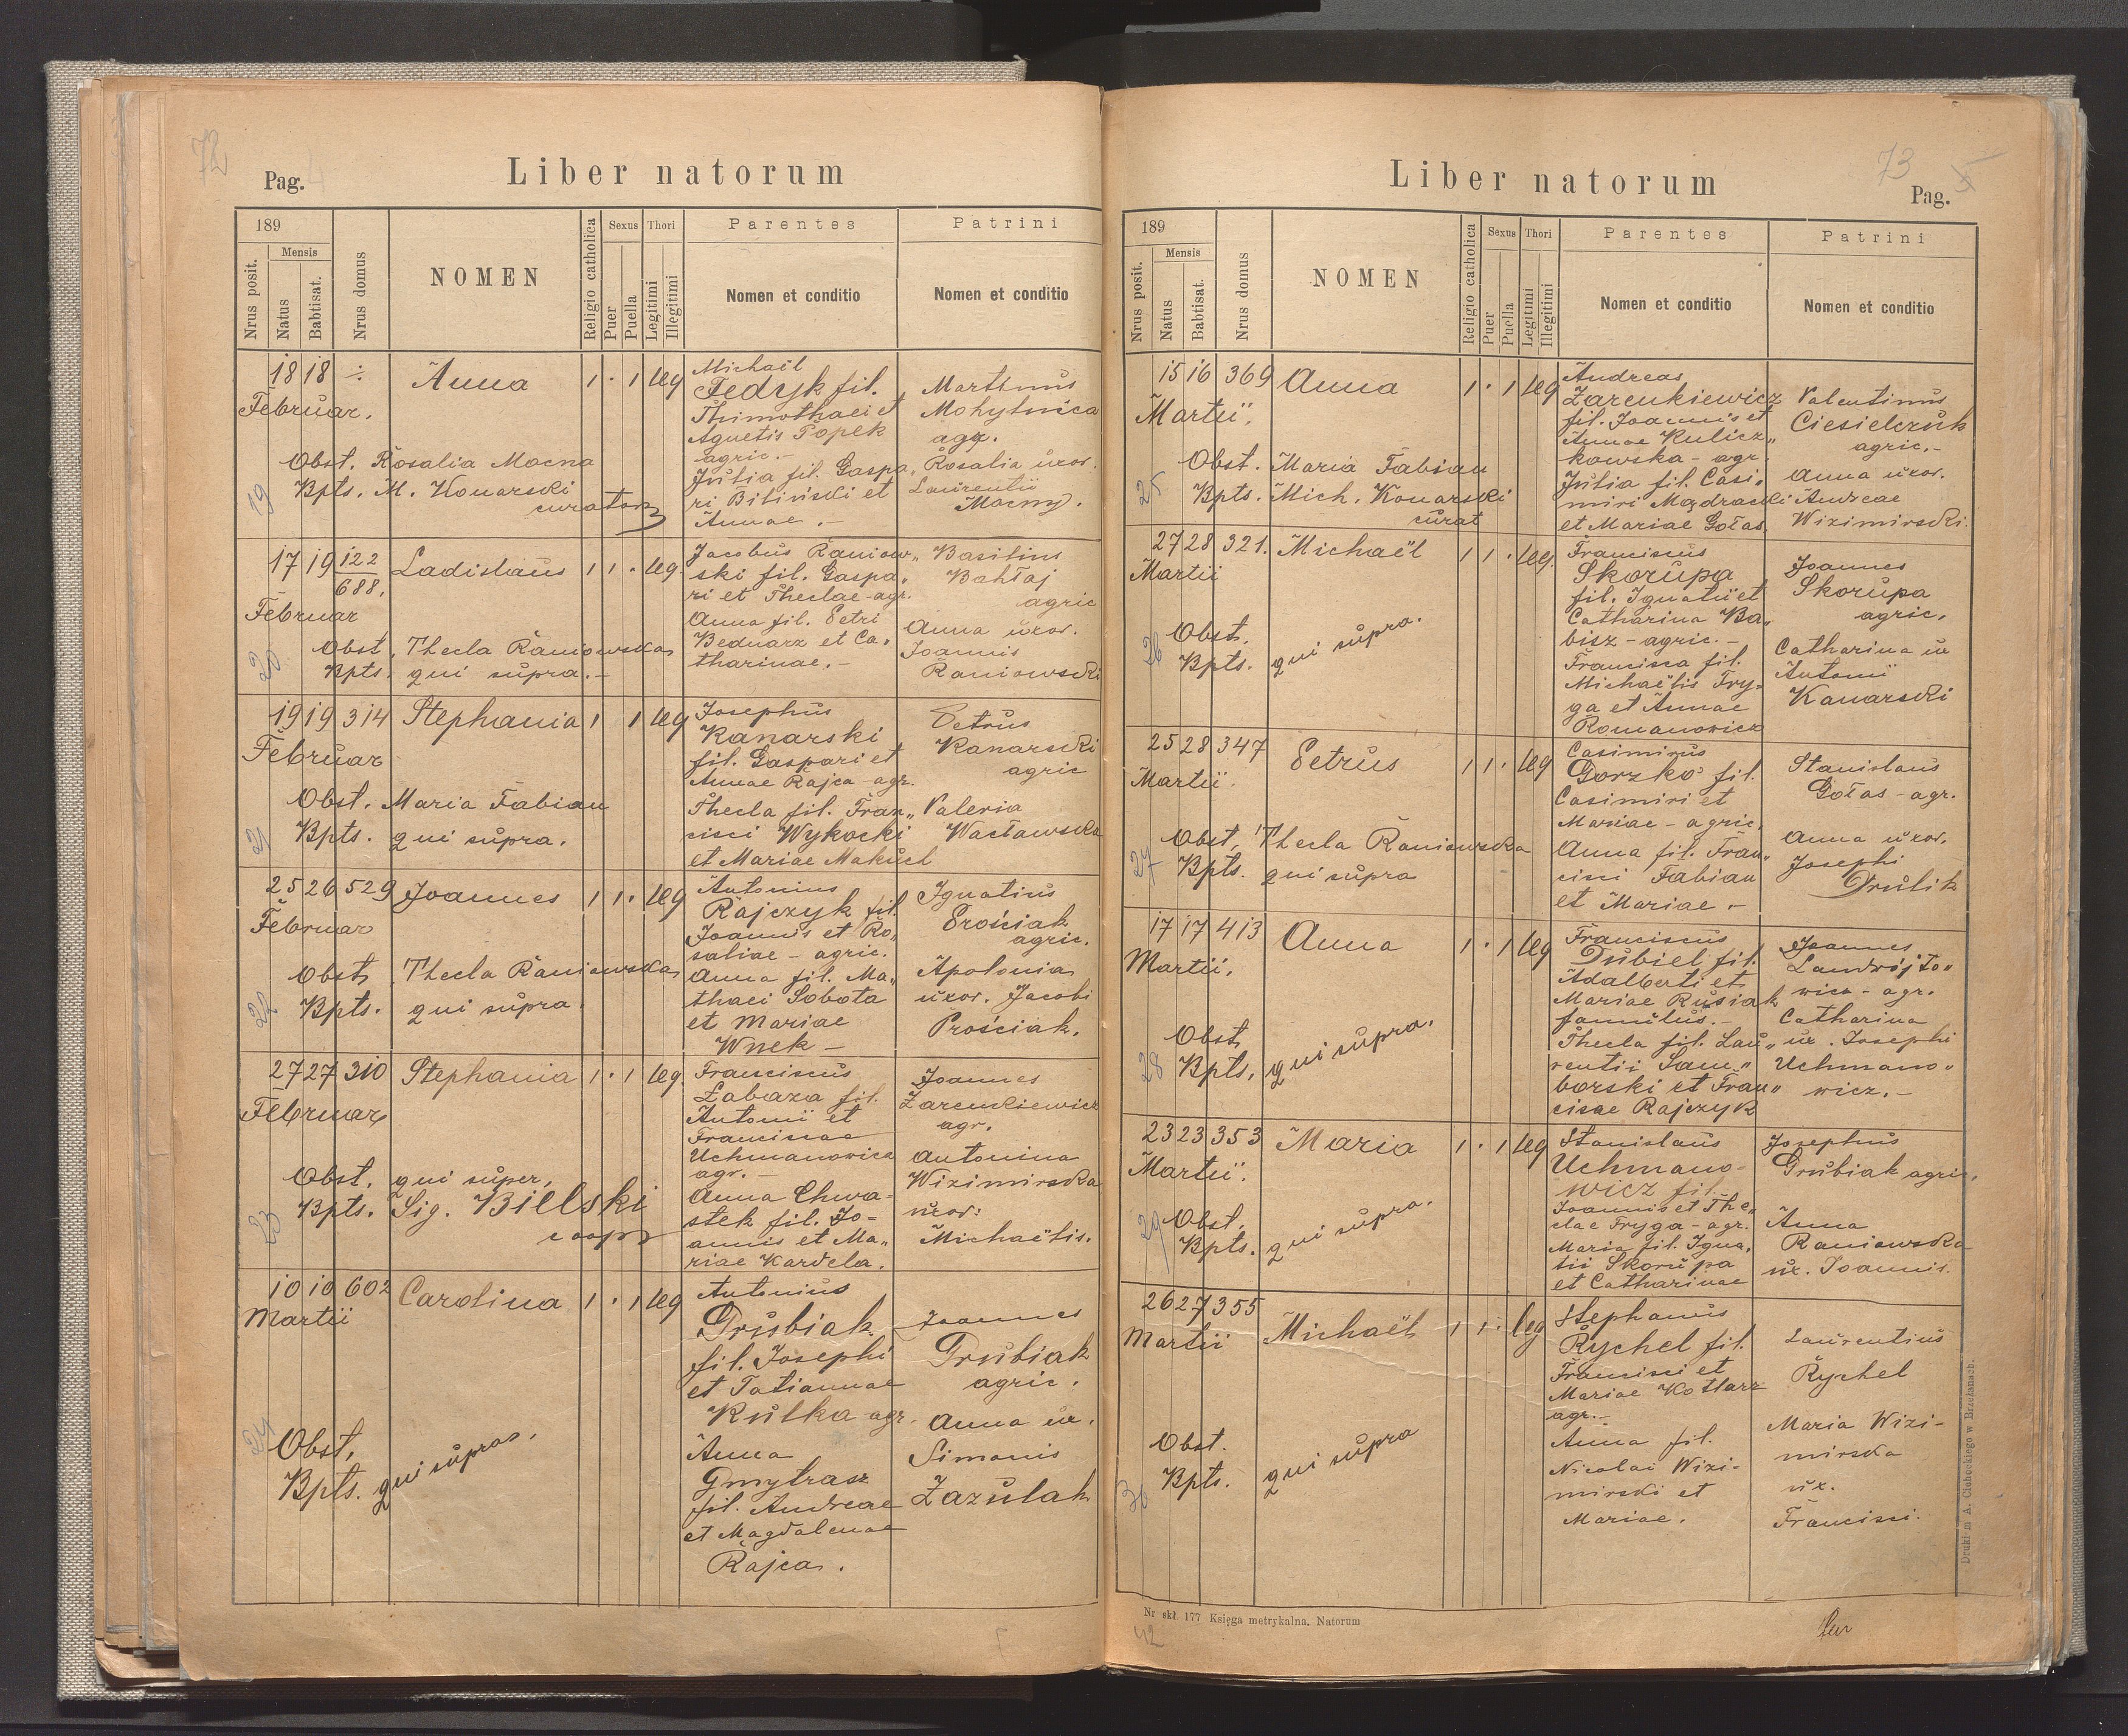 72
Pag. 4
Liber natorum
189
Nrus posit.
Mensis
Natus
Babtisat.
Nrus domus
NOMEN
Religio catholica
Sexus
Puer
Puella
Thori
Legitimi
Illegitimi
Parentes
Nomen et conditio
Patrini
Nomen et conditio
19
18 18 ÷ Anna 1 · 1 leg
Februar.
Obst. Rosalia Mocna
Bpts. M. Konarski
curator
Michaël
Fedyk fil.
Thimothaei et
Agnetis Popek
agric.-
Julia fil. Gaspa„
ri Bitiński et
Annae.-
Martinus
Mohylnica
agr.
Rosalia uxor.
Laurentii
Mocny.
20
17 19 122
688. Ladislaus 1 1 · leg.
Februar
Obst. Thecla Raniowska
Bpts. qui supra.-
Jacobus Raniow„
ski fil. Gaspa„
ri et Theclae-agr.
Anna fil. Petri
Bednarz et Ca„
tharinae.-
Basilius
Bahłaj
agric
Anna uxor.
Joannis
Raniowski
21
19 19 314 Stephania 1 1 leg
Februar
Obst. Maria Fabian
Bpts. qui supra.
Josephus
Kanarski
fil. Gaspari et
Annae Rajca-agr.
Thecla fil. Fran„
cisci Wykocki
et Mariae Makuch
Petrus
Kanarski
agric
Valeria
Wacławska
22
25 26 529 Joannes 1 1 · leg
Februar
Obst. Thecla Raniowska
Bpts. qui supra.
Antonius
Rajczyk fil.
Joannis et Ro„
saliae - agric.
Anna fil. Ma„
thaei Sobota
et Mariae
Wnek -
Ignatius
Prościak
agric.
Apolonia
uxor. Jacobi
Prościak.
23
27 27 310 Stephania 1 · 1 leg.
Februar
Obst. qui super,
Bpts. Sig. Bielski
coop
Franciscus
Łabaza fil.
Antonii et
Franciscae
Uchmanowicz
agr.-
Anna Chwa-
stek fil. Jo-
annis et Ma„
riae Kardela.
Joannes
Zarenkiewicz
agr.
Antonina
Wizimirska
uxor:
Michaëlis.
24
10 10 602 Carolina 1 · 1 leg
Martii
Obst.
Bpts. qui supra.
Antonius
Grubiak
fil. Josephi
et Tatiannae
Kulka-agr.
Anna
Gmytrasz
fil. Andreae
et Magdalenae
Rajca.
Joannes
Grubiak
agric.
Anna ux.
Simonis
Zazulak
73
Liber natorum
Pag. 5
189
Nrus posit.
Mensis
Natus
Babtisat.
Nrus domus
NOMEN
Religio catholica
Sexus
Puer
Puella
Thori
Legitimi
Illegitimi
Parentes
Nomen et conditio
Patrini
Nomen et conditio
25
15 16 369 Anna 1 · 1 leg
Martii.
Obst. Maria Fabian
Bpts. Mich. Konarski
curat
Andreas
Zarenkiewicz
fil. Joannis et
Annae Kulicz„
kowska - agr.
Julia fil. Casi„
miri Mądracki
et Mariae Gołas
Valentinus
Ciesielczuk
agric.-
Anna uxor.
Andreae
Wizimirski.
26
27 28 321. Michaël 1 1 · leg.
Martii
Obst.
Bpts. qui supra.
Franciscus
Skorupa
fil. Ignatii et
Catharina Ba„
bisz - agric.-
Francisca fil.
Michaëlis Fry„
ga et Annae
Romanowicz
Joannes
Skorupa
agric.
Catharina ux
Antonii
Kanarski
27
25 28 347 Petrus 1 1 · leg
Martii.
Obst. Thecla Raniowska
Bpts. qui supra
Casimirus
Gorzko fil.
Casimiri et
Mariae - agric.
Anna fil. Fran„
cisci Fabian
et Mariae.-
Stanislaus
Gołas - agr.
Anna uxor.
Josephi
Drulik
28
17 17 413 Anna 1 · 1 leg
Martii.
Obst.
Bpts. qui supra.
Franciscus
Dubiel fil.
Adalberti et
Mariae Rusiak
famulus.-
Thecla fil. Lau„
rentii Sam„
borski et Fran„
cisae Rajczyk
Joannes
Landwójto„
wicz - agr.
Catharina
ux. Josephi
Uchmano„
wicz.-
29
23 23 353 Maria 1 · 1 leg
Martii.
Obst.
Bpts. qui supra.
Stanislaus
Uchmano-
wicz fil.
Joannis et The„
clae Fryga - agr.
Maria fil. Igna„
tii Skorupa
et Catharinae
Josephus
Grubiak agric.
Anna
Raniowska
ux. Joannis.
30
26 27 355 Michaël 1 1 · leg
Martii
Obst.
Bpts. qui supra
Stephanus
Rychel fil.
Francisci et
Mariae Kotlarz
agr.-
Anna fil.
Nicolai Wizi-
mirski et
Mariae.
Laurentius
Rychel
Maria Wizi-
mirska
ux.
Francisci.
Druki m A. Cichockiego w Brzeżanach.
Nr skł. 177 Księga metrykalna. Natorum
42